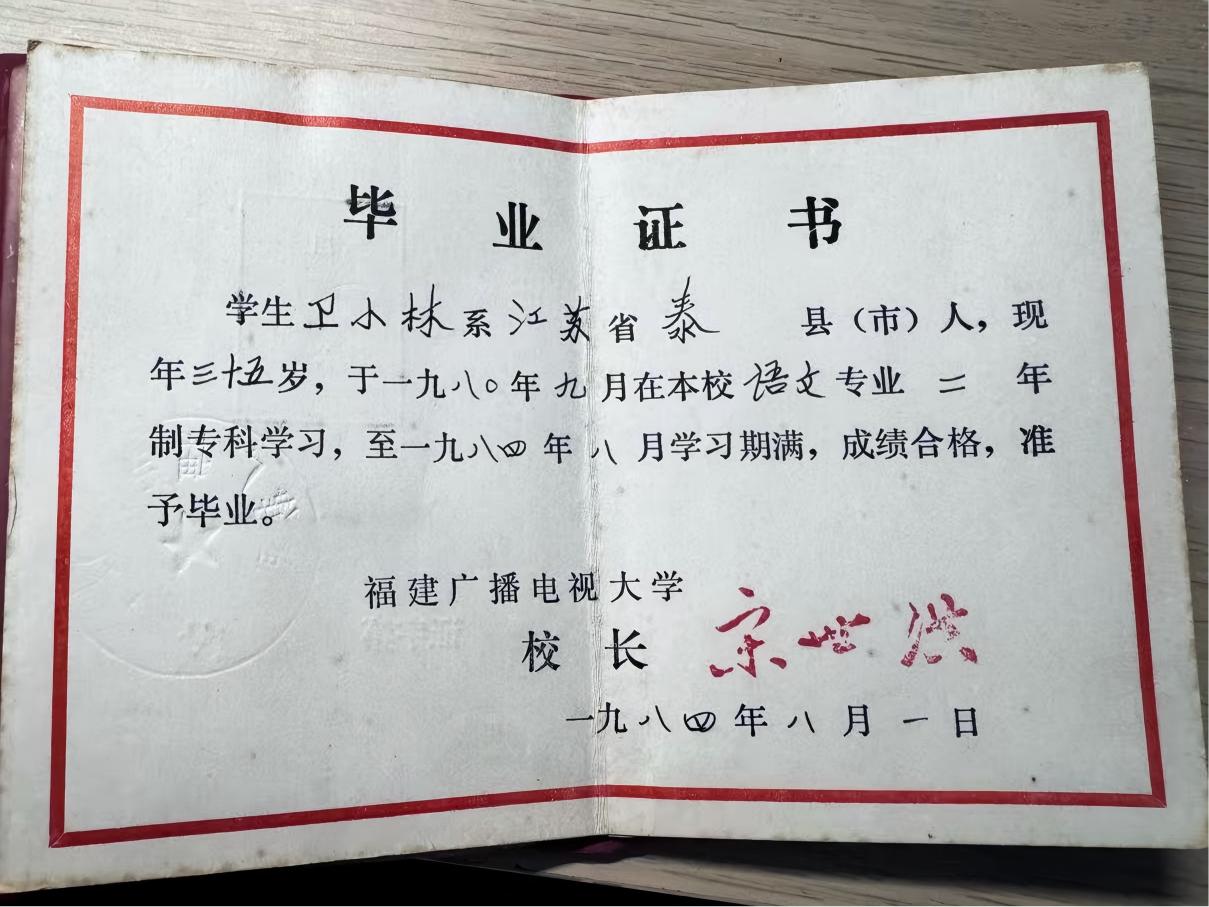 毕业证书
学生卫小林系江苏省泰 县（市）人，现
年三十五岁，于一九八〇年九月在本校语文专业 三 年
制专科学习，至一九八四年八月学习期满，成绩合格，准
予毕业。
福建广播电视大学
校长 宗世洪
一九八四年八月一日